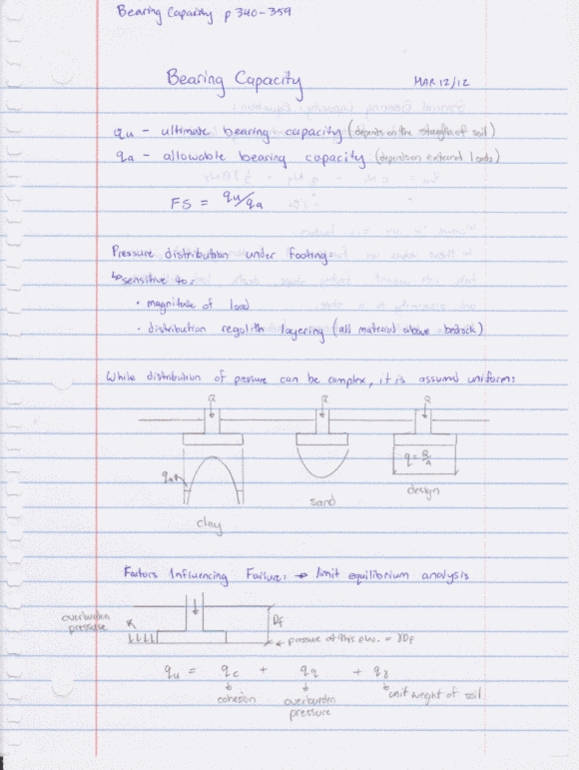 Bearing Capacity p 340-359
Bearing Capacity MAR 12/12
qu - ultimate bearing capacity (depends on the strength of soil)
qa - allowable bearing capacity (depends on external loads)
FS = qu/qa
Pressure distribution under footing:
↳ sensitive to:
• magnitude of load
• distribution regolith layering (all material above bedrock)
While distribution of pressure can be complex, it is assumed uniform:
Q Q Q
qa q = Q/A
clay sand design
Factors Influencing Failure: → limit equilibrium analysis
overburden
pressure
Df
← pressure at this elev. = γDf
qu = qc + qq + qγ
cohesion overburden unit weight of soil
pressure